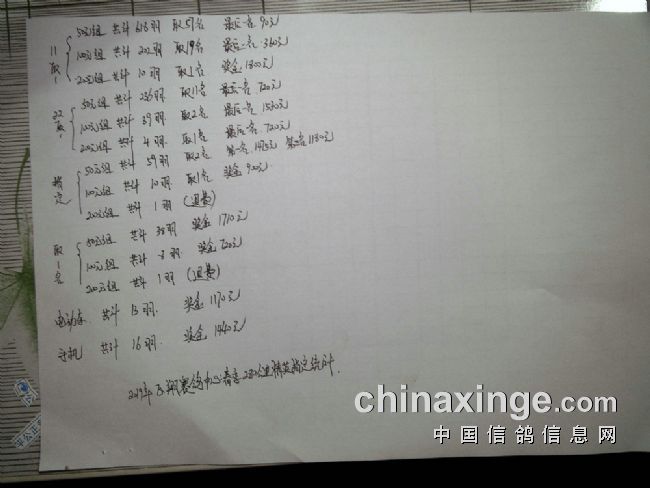 11取1
50元组 共计 616羽 取57名 最后一名 90元
100元组 共计 202羽 取19名 最后一名 360元
200元组 共计 10羽 取1名 奖金 1800元
22取1
50元组 共计 256羽 取11名 最后一名 720元
100元组 共计 39羽 取2名 最后一名 1540元
200元组 共计 4羽 取1名 最后一名 720元
指定
50元组 共计 59羽 取2名 第一名 1475元 第二名 1180元
100元组 共计 10羽 取1名 奖金 900元
200元组 共计 1羽 (退费)
取1名
50元组 共计 38羽 奖金 1710元
100元组 共计 8羽 奖金 720元
200元组 共计 1羽 (退费)
电动车 共计 13羽 奖金 1170元
手机 共计 16羽 奖金 1440元
2019年 翔赛鸽中心春季 公里精英指定统计.
chinaxinge.com
中国信鸽信息网